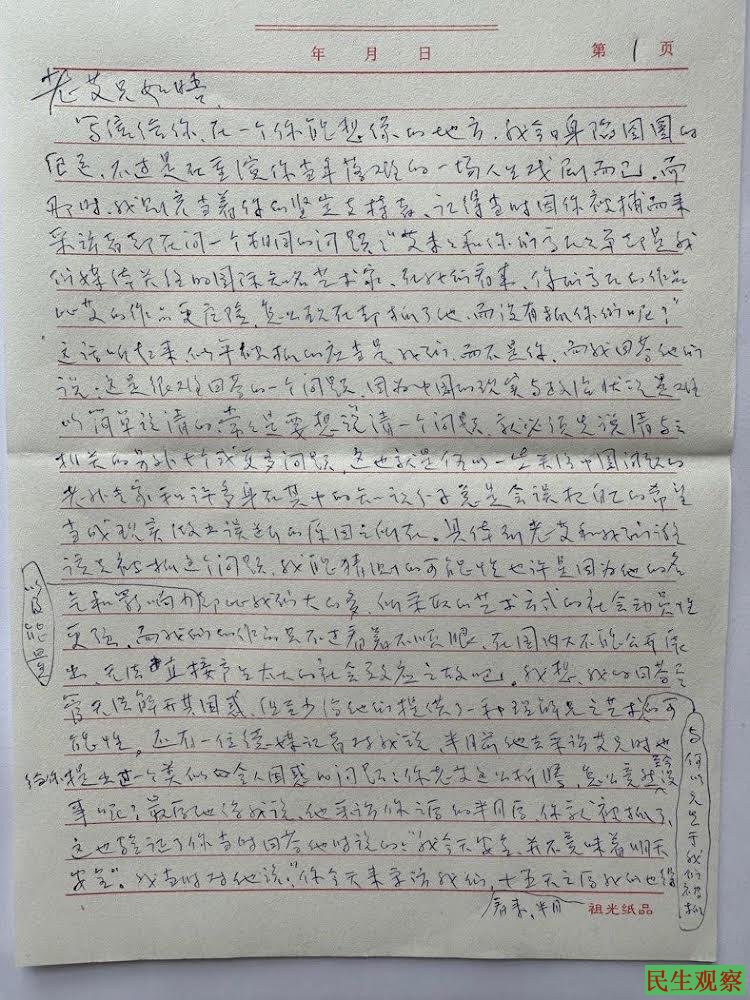 年 月 日 第 1 页
老艾兄如晤
写信给你，在一个你能想像的地方，我今日身陷囹圄的
但是，不过是在重演你当年落难的一场人生戏剧而已，而
那时，我则充当着你的坚定支持者，记得当时因你被捕而来
采访者都在问一个相同的问题："艾未未和你们高氏兄弟都是我
们媒体关注的国际知名艺术家，在我们看来，你们高氏的作品
比艾的作品更危险，怎么现在却抓了他，而没有抓你们呢？"
这话听起来，似乎被抓的应当是我们，而不是你，而我回答他们
说：这是很难回答的一个问题，因为中国的现实与政治状况是难
以简单说清的，常常是要想说清一个问题，就必须先说清与之
相关的另外十个或更多问题，这也就是何以一些关注中国问题的
老外专家和许多身在其中的知识分子总是会误把自己的希望
当成现实做出误判的原因之所在。具体到老艾和我们谁
该先被抓这个问题，我能猜测的可能性也许是因为他的名
气和影响力都比我们大的多，他采取的艺术方式的社会动员性
能量
更强，而我们的作品只不过看着不顺眼，在国内又不能公开展
出，无法直接产生太大的社会效应之故吧，我想，我的回答尽
管无法解开其困惑，但至少给他们提供了一种理解
与何以先于我们被抓
的可
能性，还有一位德媒记者对我说，半月前他去采访艾兄时也
给你提出过一个类似的令人困惑的问题：你老艾这么折腾，怎么竟然会没
事呢？最后他给我说，他采访你之后的半月后，你就被抓了，
这也验证了你当时回答他时说的："我今天安全，并不意味着明天
安全"。我当时对他说："你今天来采访我们，十五天之后我们也
看来，半月
祖光纸品
民生观察